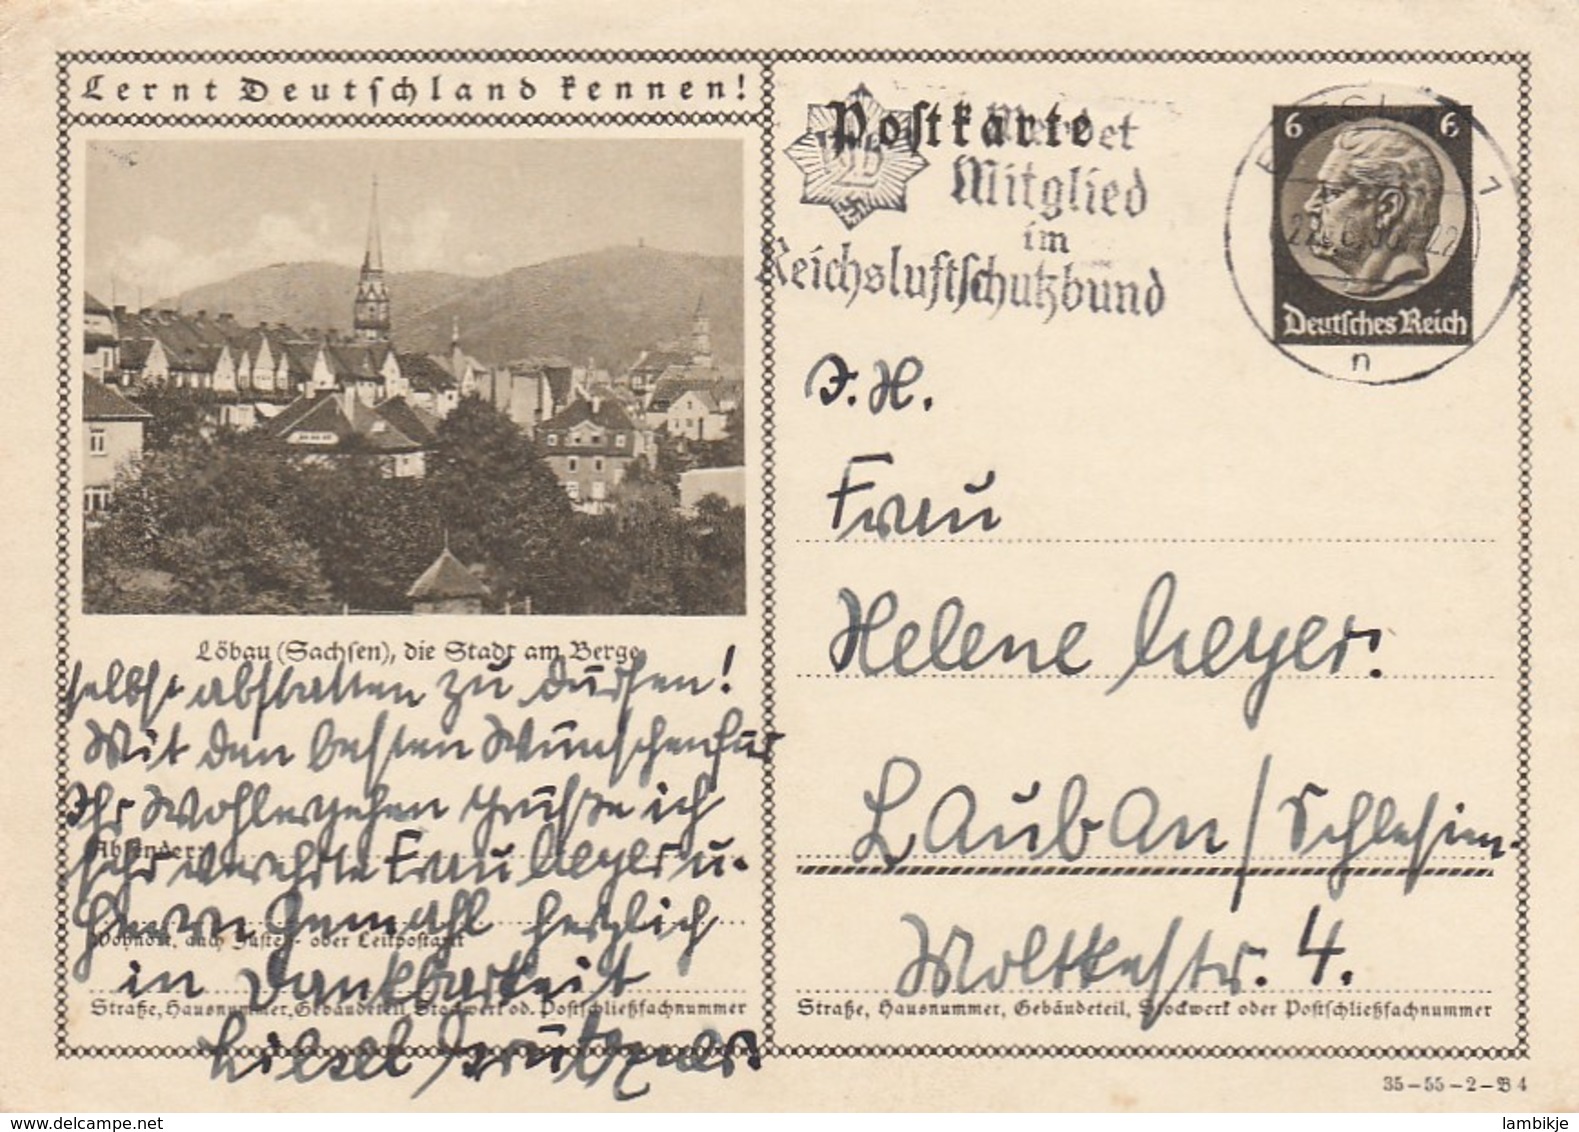 Lernt Deutschland kennen!
Löbau (Sachsen), die Stadt am Berge
selbst abstatten zu dürfen!
Mit den besten Wünschen für
Ihr Wohlergehen grüße ich
Absender:
sehr verehrte Frau Meyer u.
Herrn Gemahl herzlich
Wohnort, auch Zustell- oder Leitpostamt
in Dankbarkeit
Straße, Hausnummer, Gebäudeteil, Stockwerk od. Postschließfachnummer
Liesel
Postkarte
Werdet
Mitglied
im
Reichsluftschutzbund
6 6
Deutsches Reich
n
I. H.
Frau
Helene Meyer.
Lauban / Schlesien.
Moltkestr. 4.
Straße, Hausnummer, Gebäudeteil, Stockwerk oder Postschließfachnummer
35-55-2-B 4
lambikje